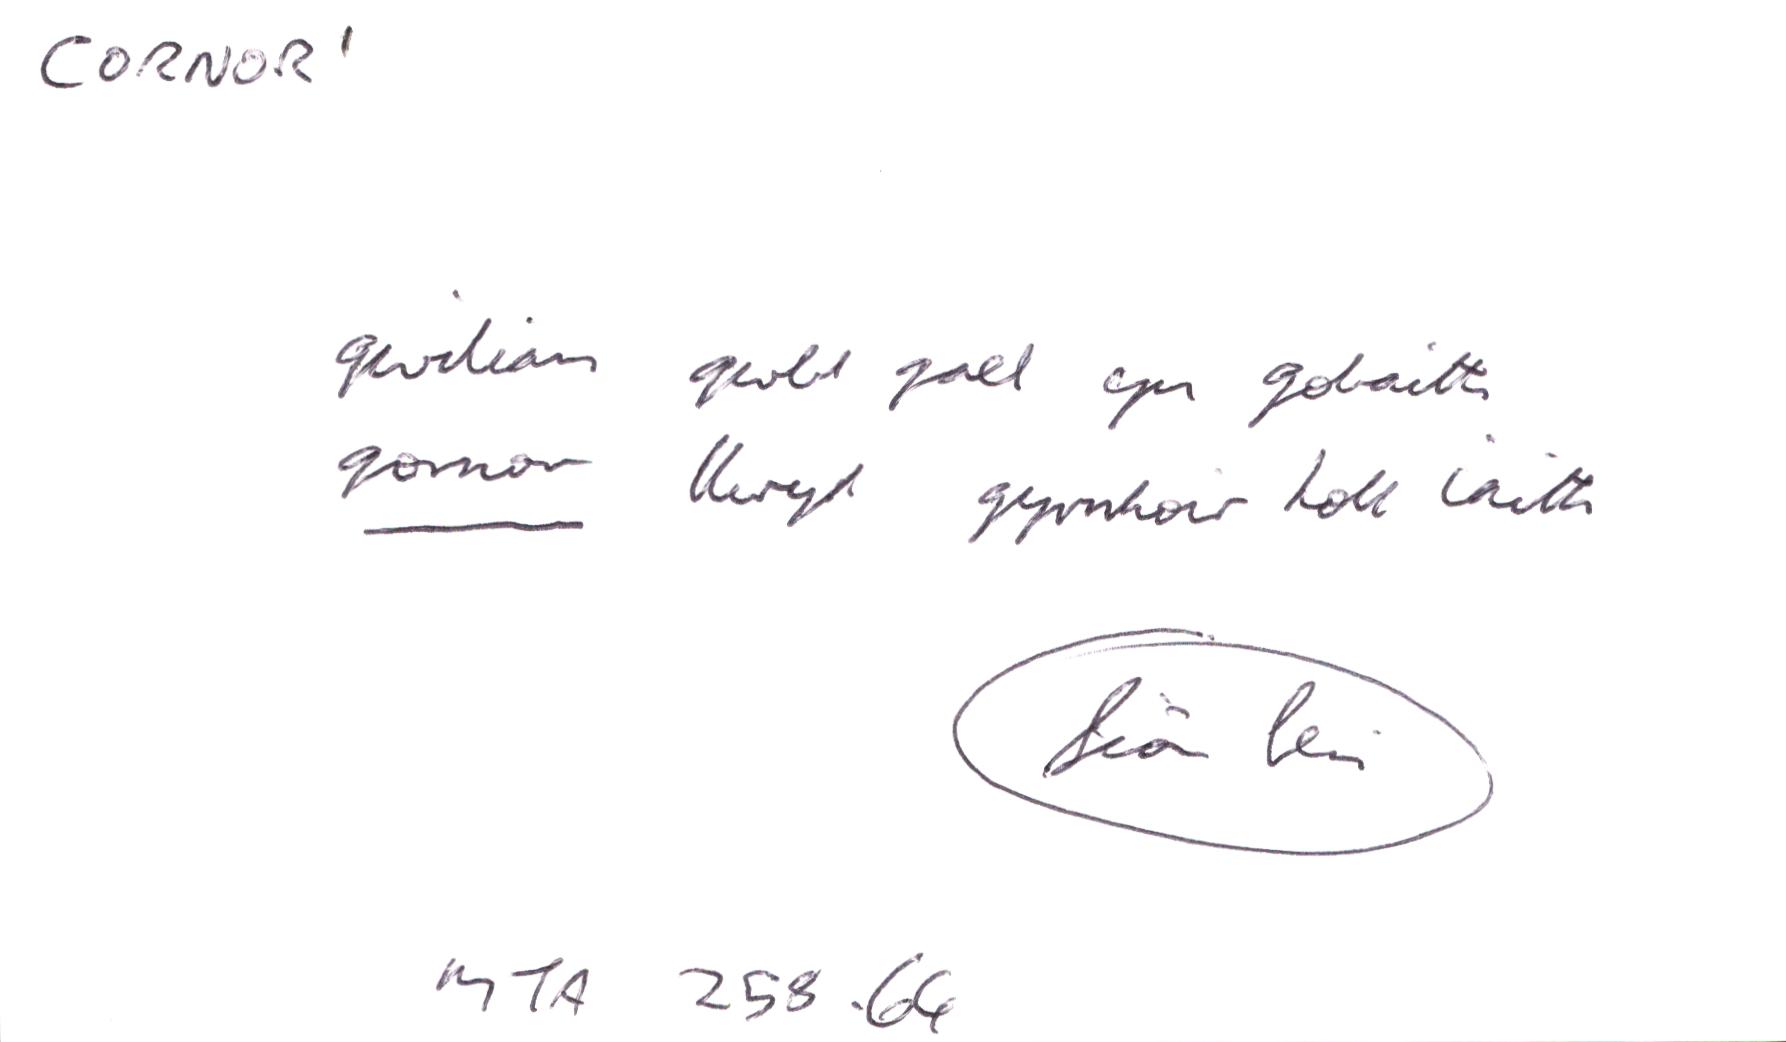 CORNOR'
gwilian gwbl gall eyn gobaith
gornor llwyd gyvnhair holl iaith
Siôn Ceri
MTA 258.64